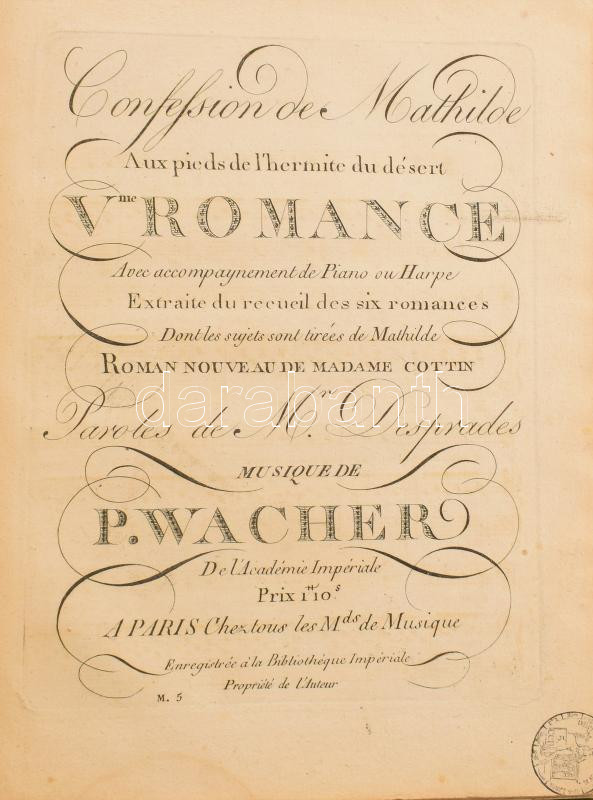 Confession de Mathilde
Aux pieds de l'hermite du désert
Vme ROMANCE
Avec accompaynement de Piano ou Harpe
Extraite du recueil des six romances
Dont les sujets sont tirées de Mathilde
ROMAN NOUVEAU DE MADAME COTTIN
darabanth
Paroles de Mr. Desprades
MUSIQUE DE
P. WACHER
De l'Académie Impériale
Prix 1tt 10s
A PARIS Chez tous les Mds de Musique
Enregistrée à la Bibliothéque Impériale
Propriété de l'Auteur
M. 5